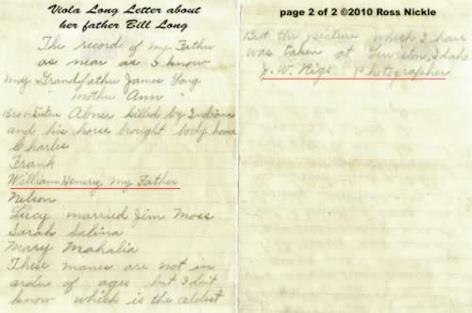 Viola Long Letter about
her father Bill Long
The record of my Father
as near as I know
my Grandfather James Long
mother Ann
Abner killed by Indians
and his horse brought body home
Charles
Frank
William Henery, my Father
Nelson
Lucy married Jim Moss
Sarah Salina
Mary Mahalia
These names are not in
order of ages but I don't
know which is the oldest
page 2 of 2 ©2010 Ross Nickle
But the picture which I have
was taken at Lewiston, Idaho
J. W. Rigs Photographer